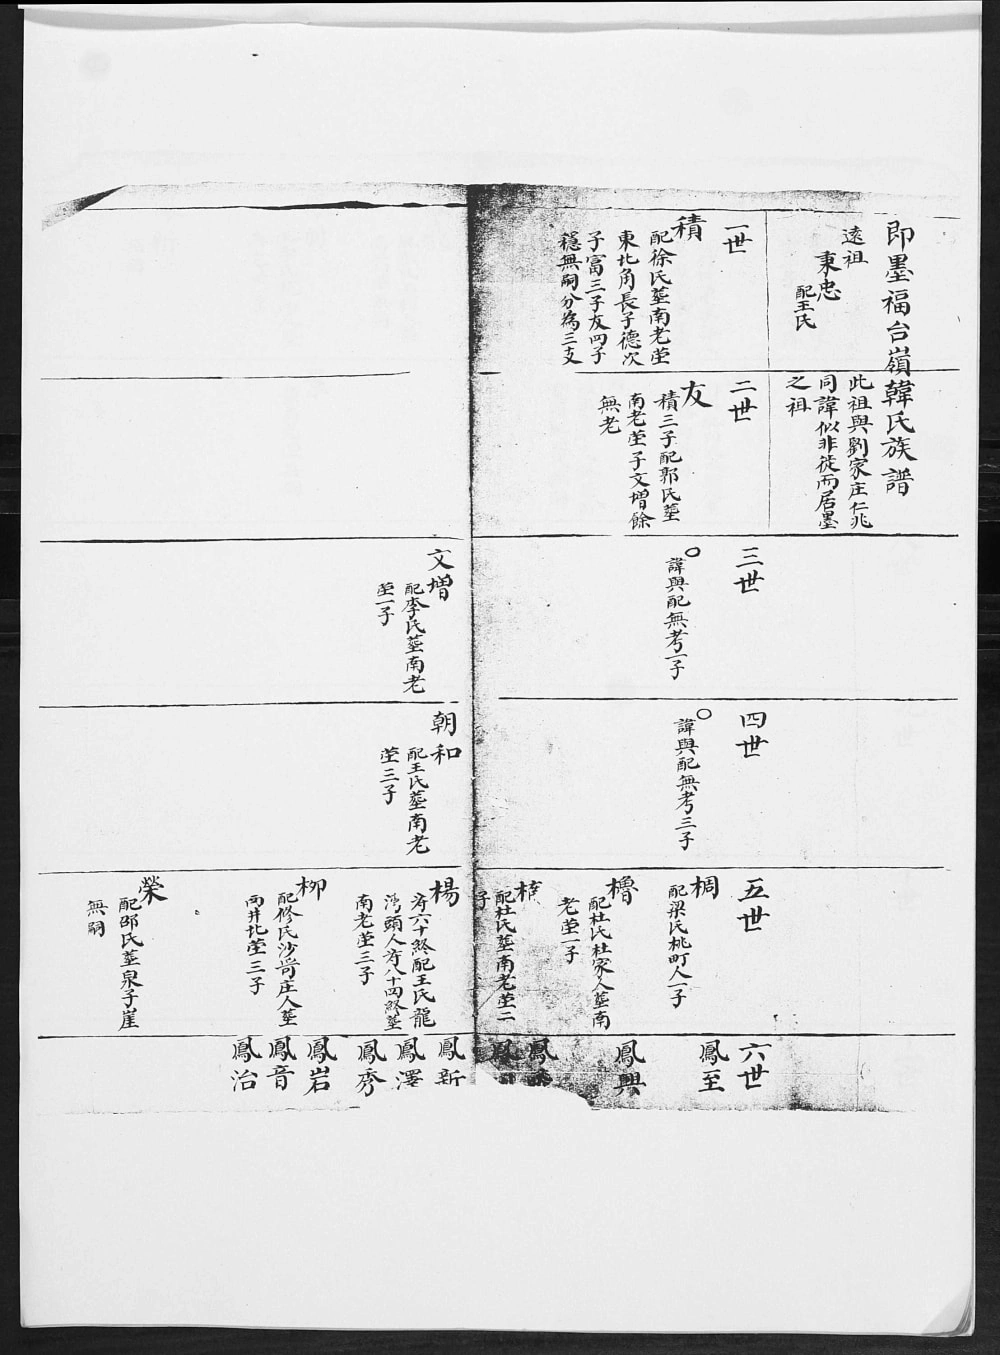 即墨福台嶺韓氏族譜
遠祖
東忠
配王氏
此祖與劉家庄仁兆
同諱似非徙而居墨
之祖
一世
積
配徐氏塟南老茔
東北角長子德次
子富三子友四子
穩無嗣分為三支
二世
友
積三子配郭氏塟
南老茔子文增餘
無老
三世
○
諱與配無考一子
文增
配李氏塟南老
茔一子
四世
○
諱與配無考三子
朝和
配王氏塟南老
茔三子
五世
椆
配梁氏桃町人一子
櫓
配杜氏杜家人塟南
老茔一子
配杜氏塟南老茔二
子
楊
寿六十終配王氏龍
灣頭人寿八十四終塟
南老茔三子
柳
配修氏沙哥庄人塟
西井北茔三子
榮
配邵氏塟泉子崖
無嗣
六世
鳳至
鳳興
鳳
鳳
鳳新
鳳澤
鳳秀
鳳岩
鳳音
鳳治